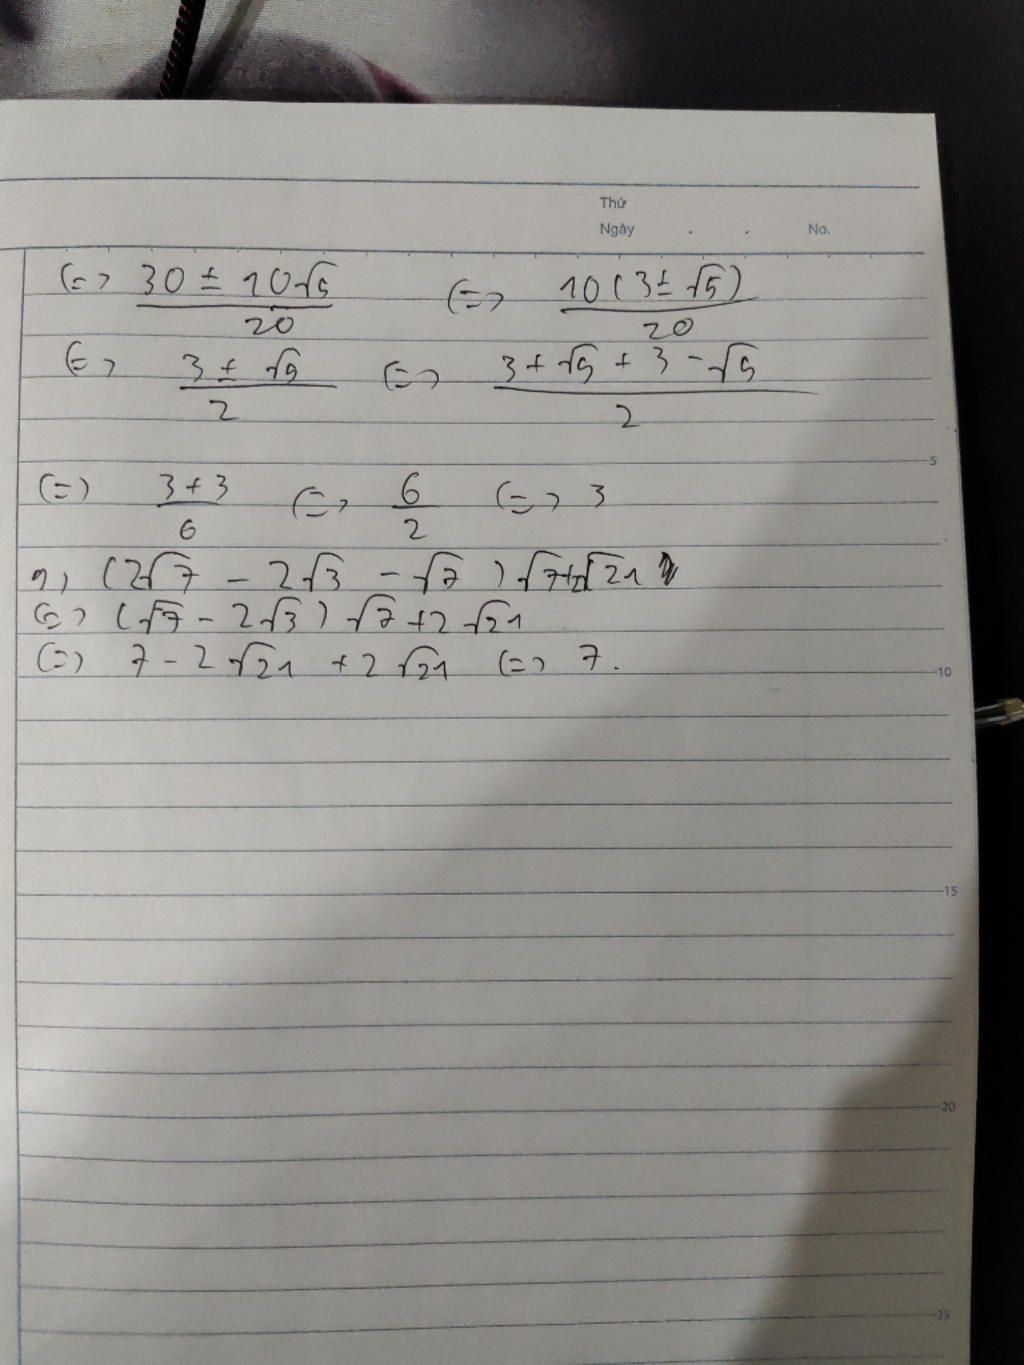 Thứ
Ngày . . No.
(=) 30 ± 10√5 / 20 (=) 10(3 ± √5) / 20
(=) 3 ± √5 / 2 (=) 3 + √5 + 3 - √5 / 2
5
(=) 3 + 3 / 6 (=) 6 / 2 (=) 3
(2√7 - 2√3 - √7) √7 + 2√21
(=) (√7 - 2√3) √7 + 2√21
(=) 7 - 2√21 + 2√21 (=) 7.
10
15
20
25